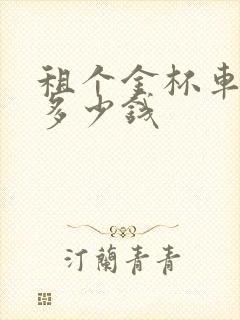 租个金杯車
多少錢
汀蘭青青